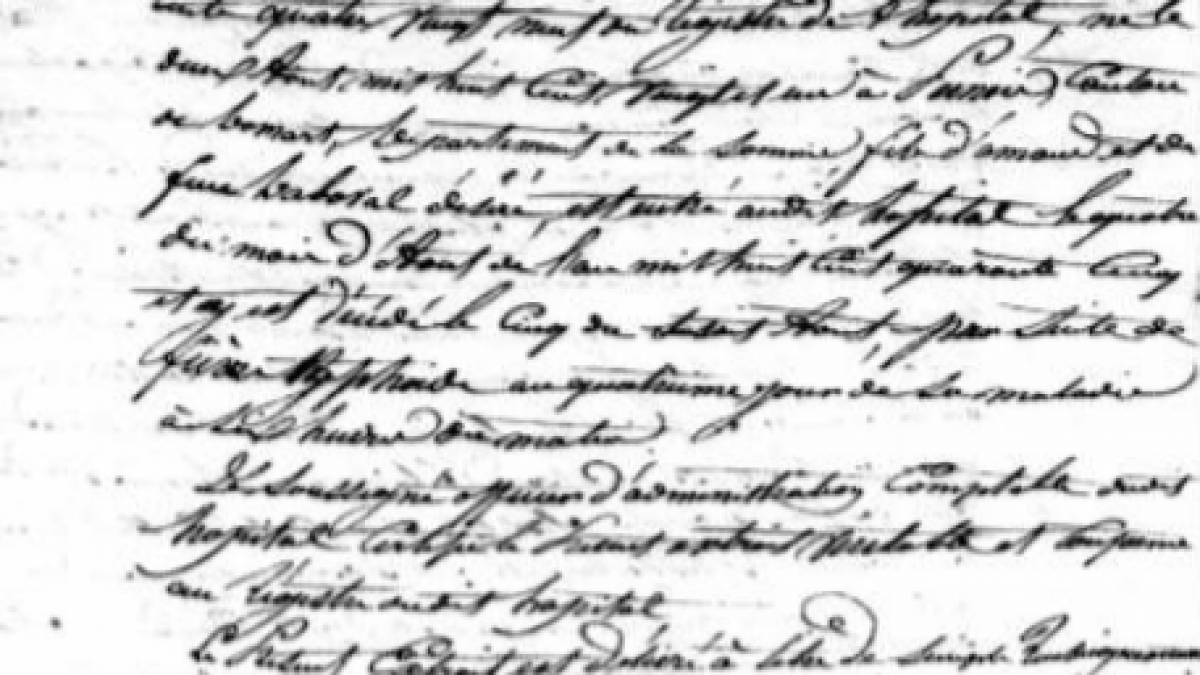 quatre vingt neuf du registre de l'hopital, né le
deux Aout, mil huit Cent vingt et un à Canton
département de la Somme, fils d'amand et de
feue désiré, est entré audit hopital le quatre
du mois d'Aout de l'an mil huit Cent quarante Cinq
et y est décédé le Cinq du Aout, par suite de
fièvre typhoide au quatrième jour de sa maladie
à Six heures du matin
Le Soussigné officier d'administration Comptable dudit
hopital Certifie le Présent extrait véritable et conforme
au registre dudit hopital
Le Présent Extrait est délivré à titre de Simple Renseignement